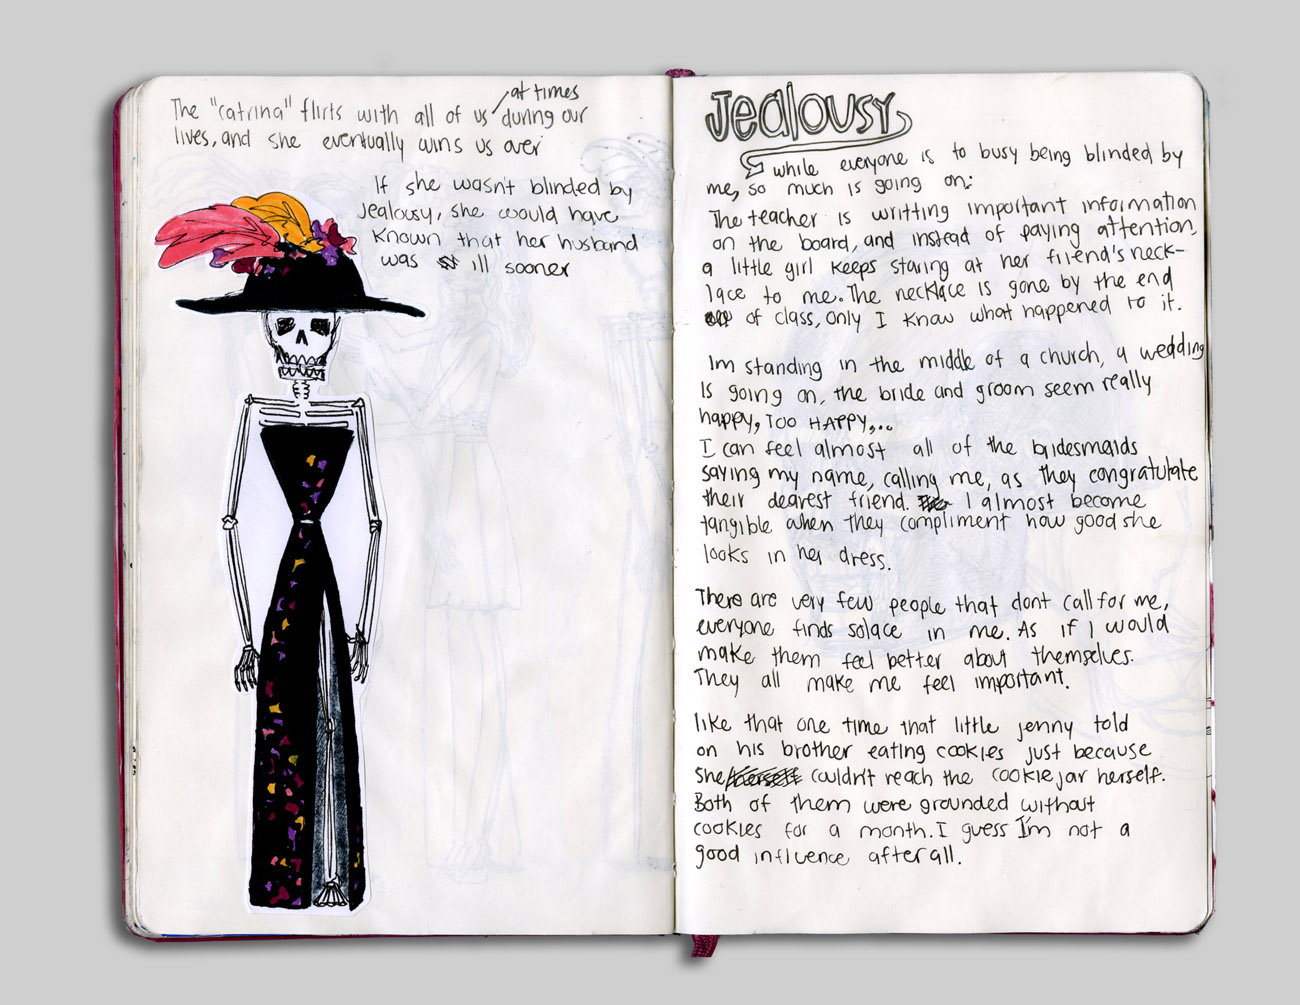 The "catrina" flirts with all of us at times during our
lives, and she eventually wins us over
If she wasn't blinded by
Jealousy, she would have
known that her husband
was ill sooner
Jealousy
while everyone is to busy being blinded by
me, so much is going on:
The teacher is writting important information
on the board, and instead of paying attention,
a little girl keeps staring at her friend's neck-
lace to me. The necklace is gone by the end
of class, only I know what happened to it.
Im standing in the middle of a church, a wedding
is going on, the bride and groom seem really
happy, TOO HAPPY,..
I can feel almost all of the bridesmaids
saying my name, calling me, as they congratulate
their dearest friend. I almost become
tangible when they compliment how good she
looks in her dress.
There are very few people that dont call for me,
everyone finds solace in me. As if I would
make them feel better about themselves.
They all make me feel important.
like that one time that little jenny told
on his brother eating cookies just because
she couldn't reach the cookie jar herself.
Both of them were grounded without
cookies for a month. I guess I'm not a
good influence after all.